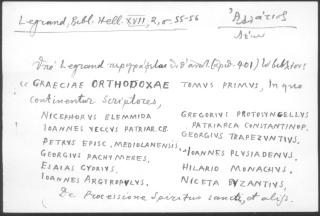 Legrand, Bibl. Hell. XVII, 2, σ. 55-56
Ἀλλάτιος
Λέων
Legrand περιγράφεται (ἀριθ. 401)
"GRAECIAE ORTHODOXAE TOMUS PRIMUS, In quo
continentur Scriptores,
NICEPHORUS BLEMMIDA
IOANNES VECCUS PATRIAR. CB.
PETRUS EPISC. MEDIOLANENSIS.
GEORGIUS PACHYMERES,
ESAIAS CYDRIUS,
IOANNES ARGYROPULUS.
GREGORIUS PROTOSYNGELLUS
PATRIARCA CONSTANTINOP.
GEORGIUS TRAPEZUNTIUS,
IOANNES PLUSIADENUS.
HILARIO MONACHUS.
NICETA BYZANTIUS,
De Processione Spiritus sancti, et aliis.